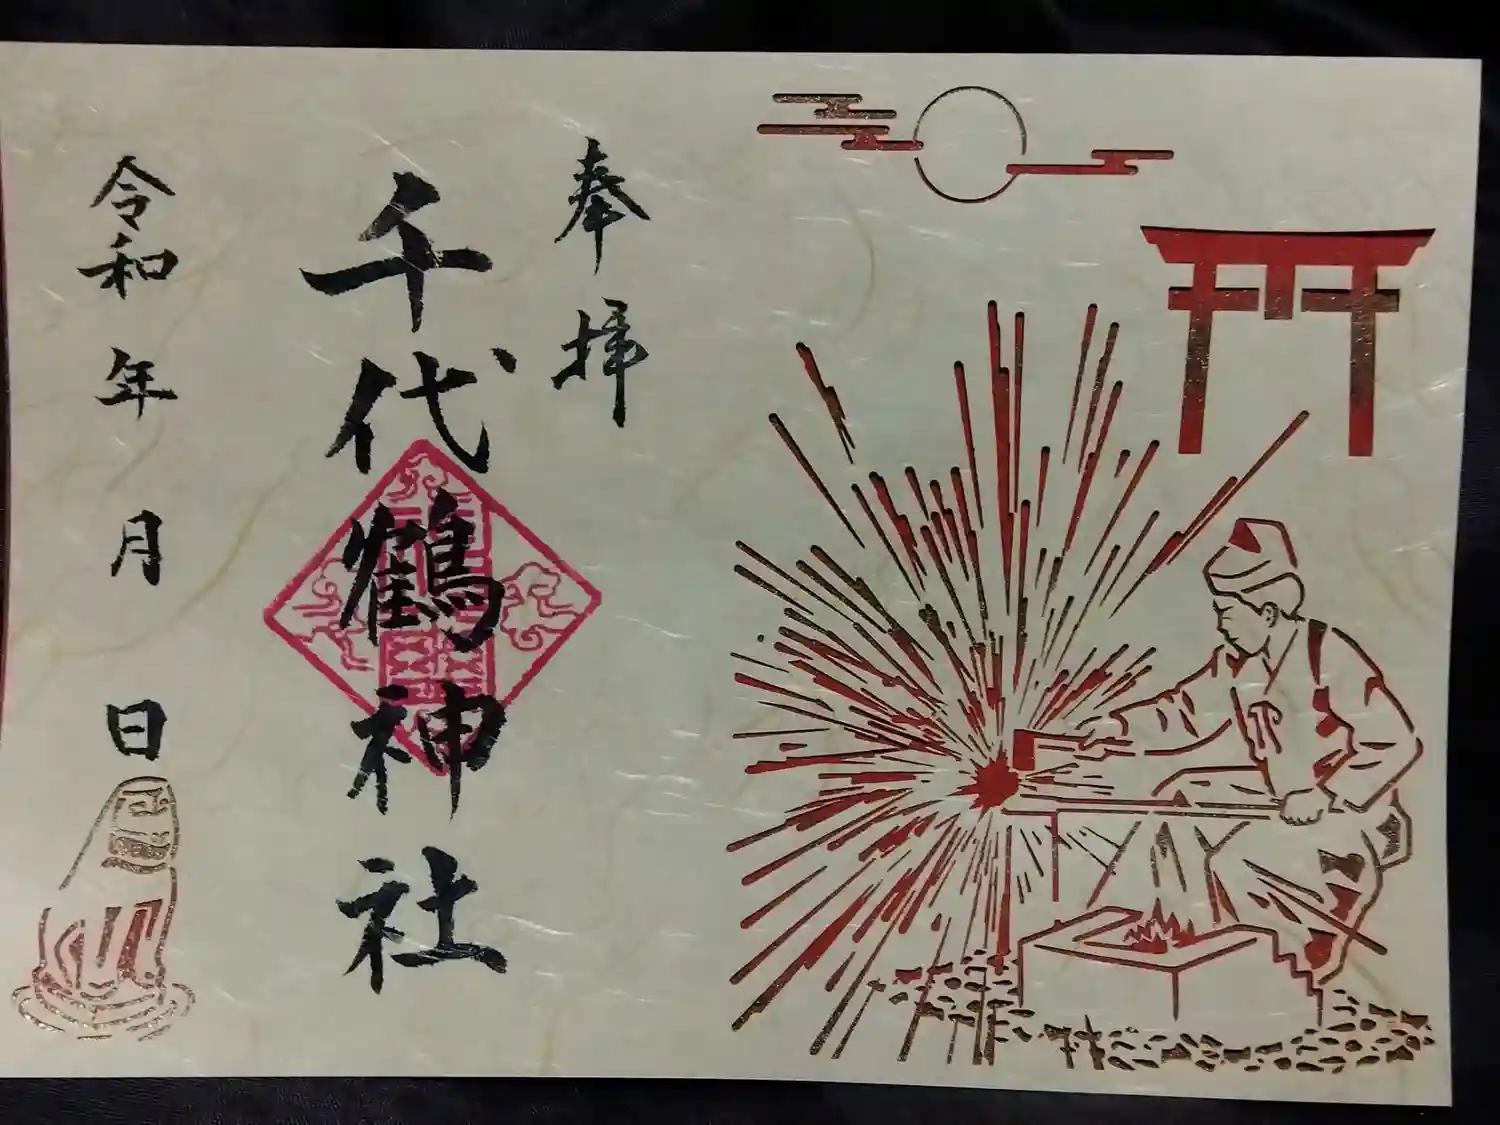 奉拝
千代鶴神社
令和 年 月 日